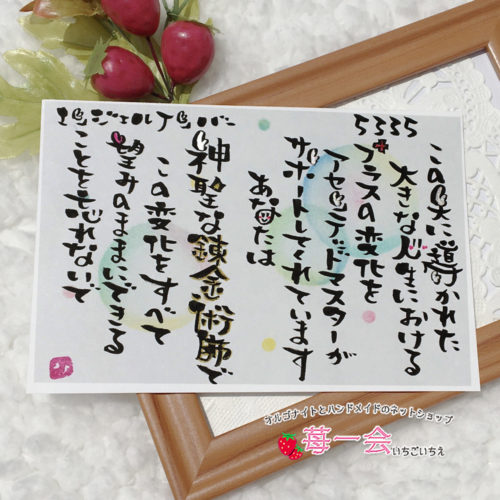 エンジェルナンバー
5335
この天に導かれた
大きな人生における
プラスの変化を
アセンデッドマスターが
サポートしてくれています
あなたは
神聖な錬金術師で
この変化をすべて
望みのままにできる
ことを忘れないで
オルゴナイトとハンドメイドのネットショップ
苺一会
いちごいちえ